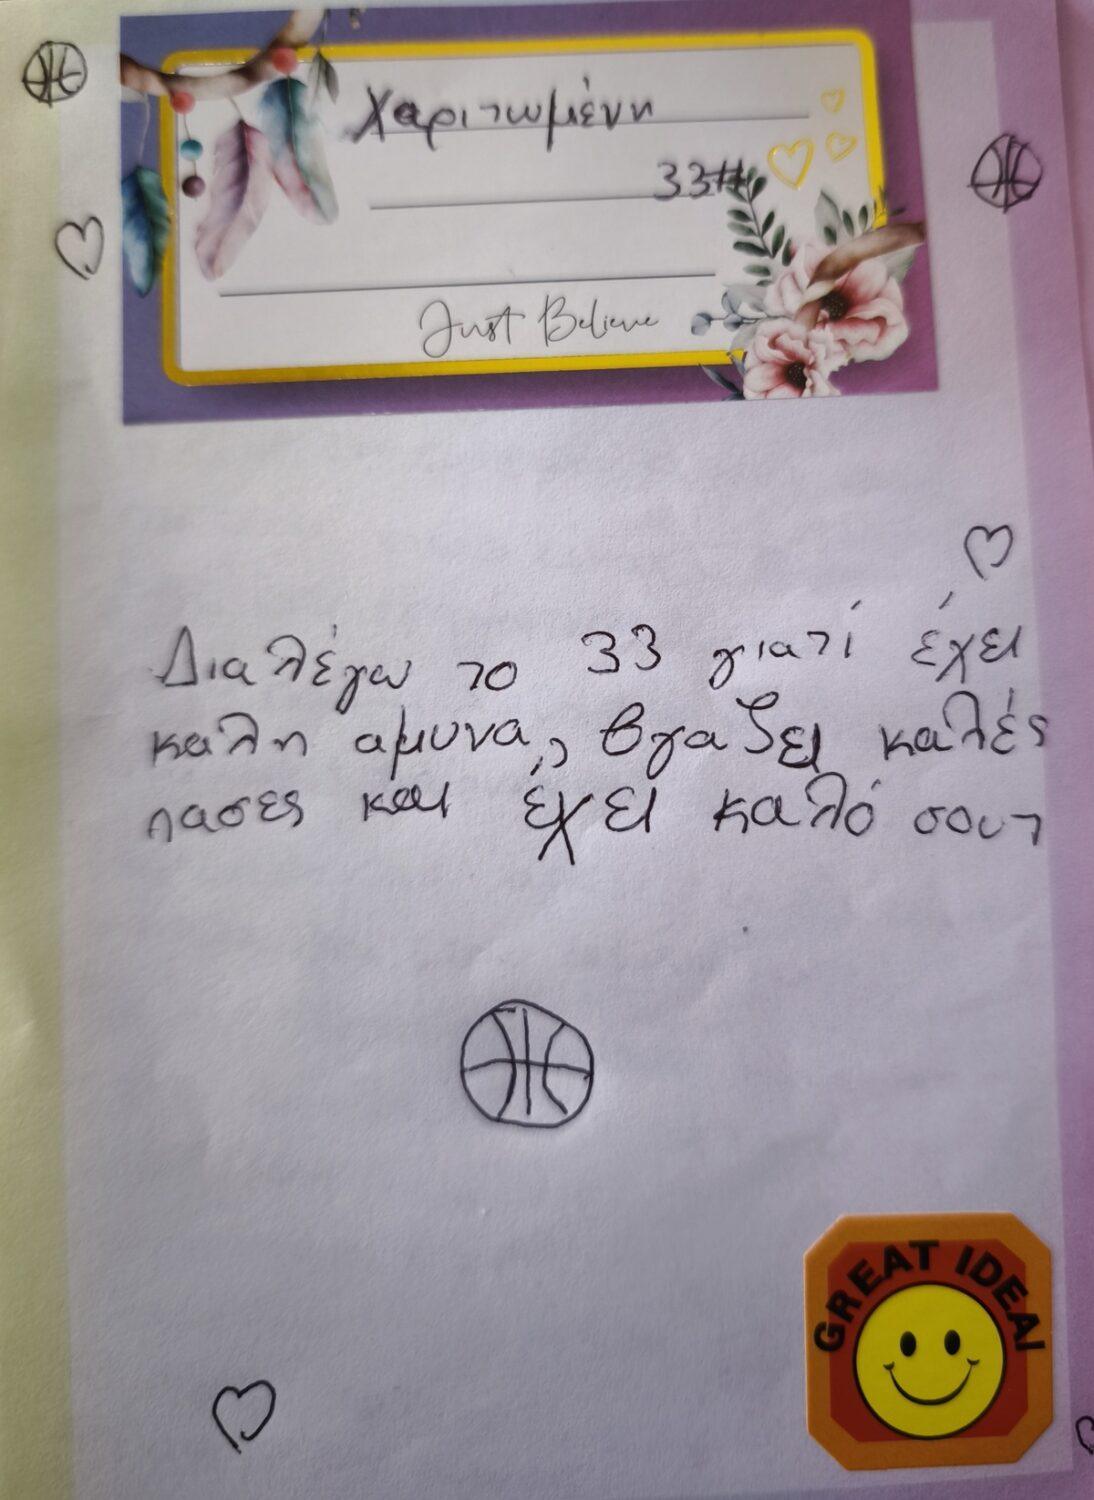 Χαριτωμένη
33#
Just Believe
Διαλέγω το 33 γιατί έχει
καλη αμυνα, βγαζει καλές
πασες και έχει καλό σουτ
GREAT IDEA!